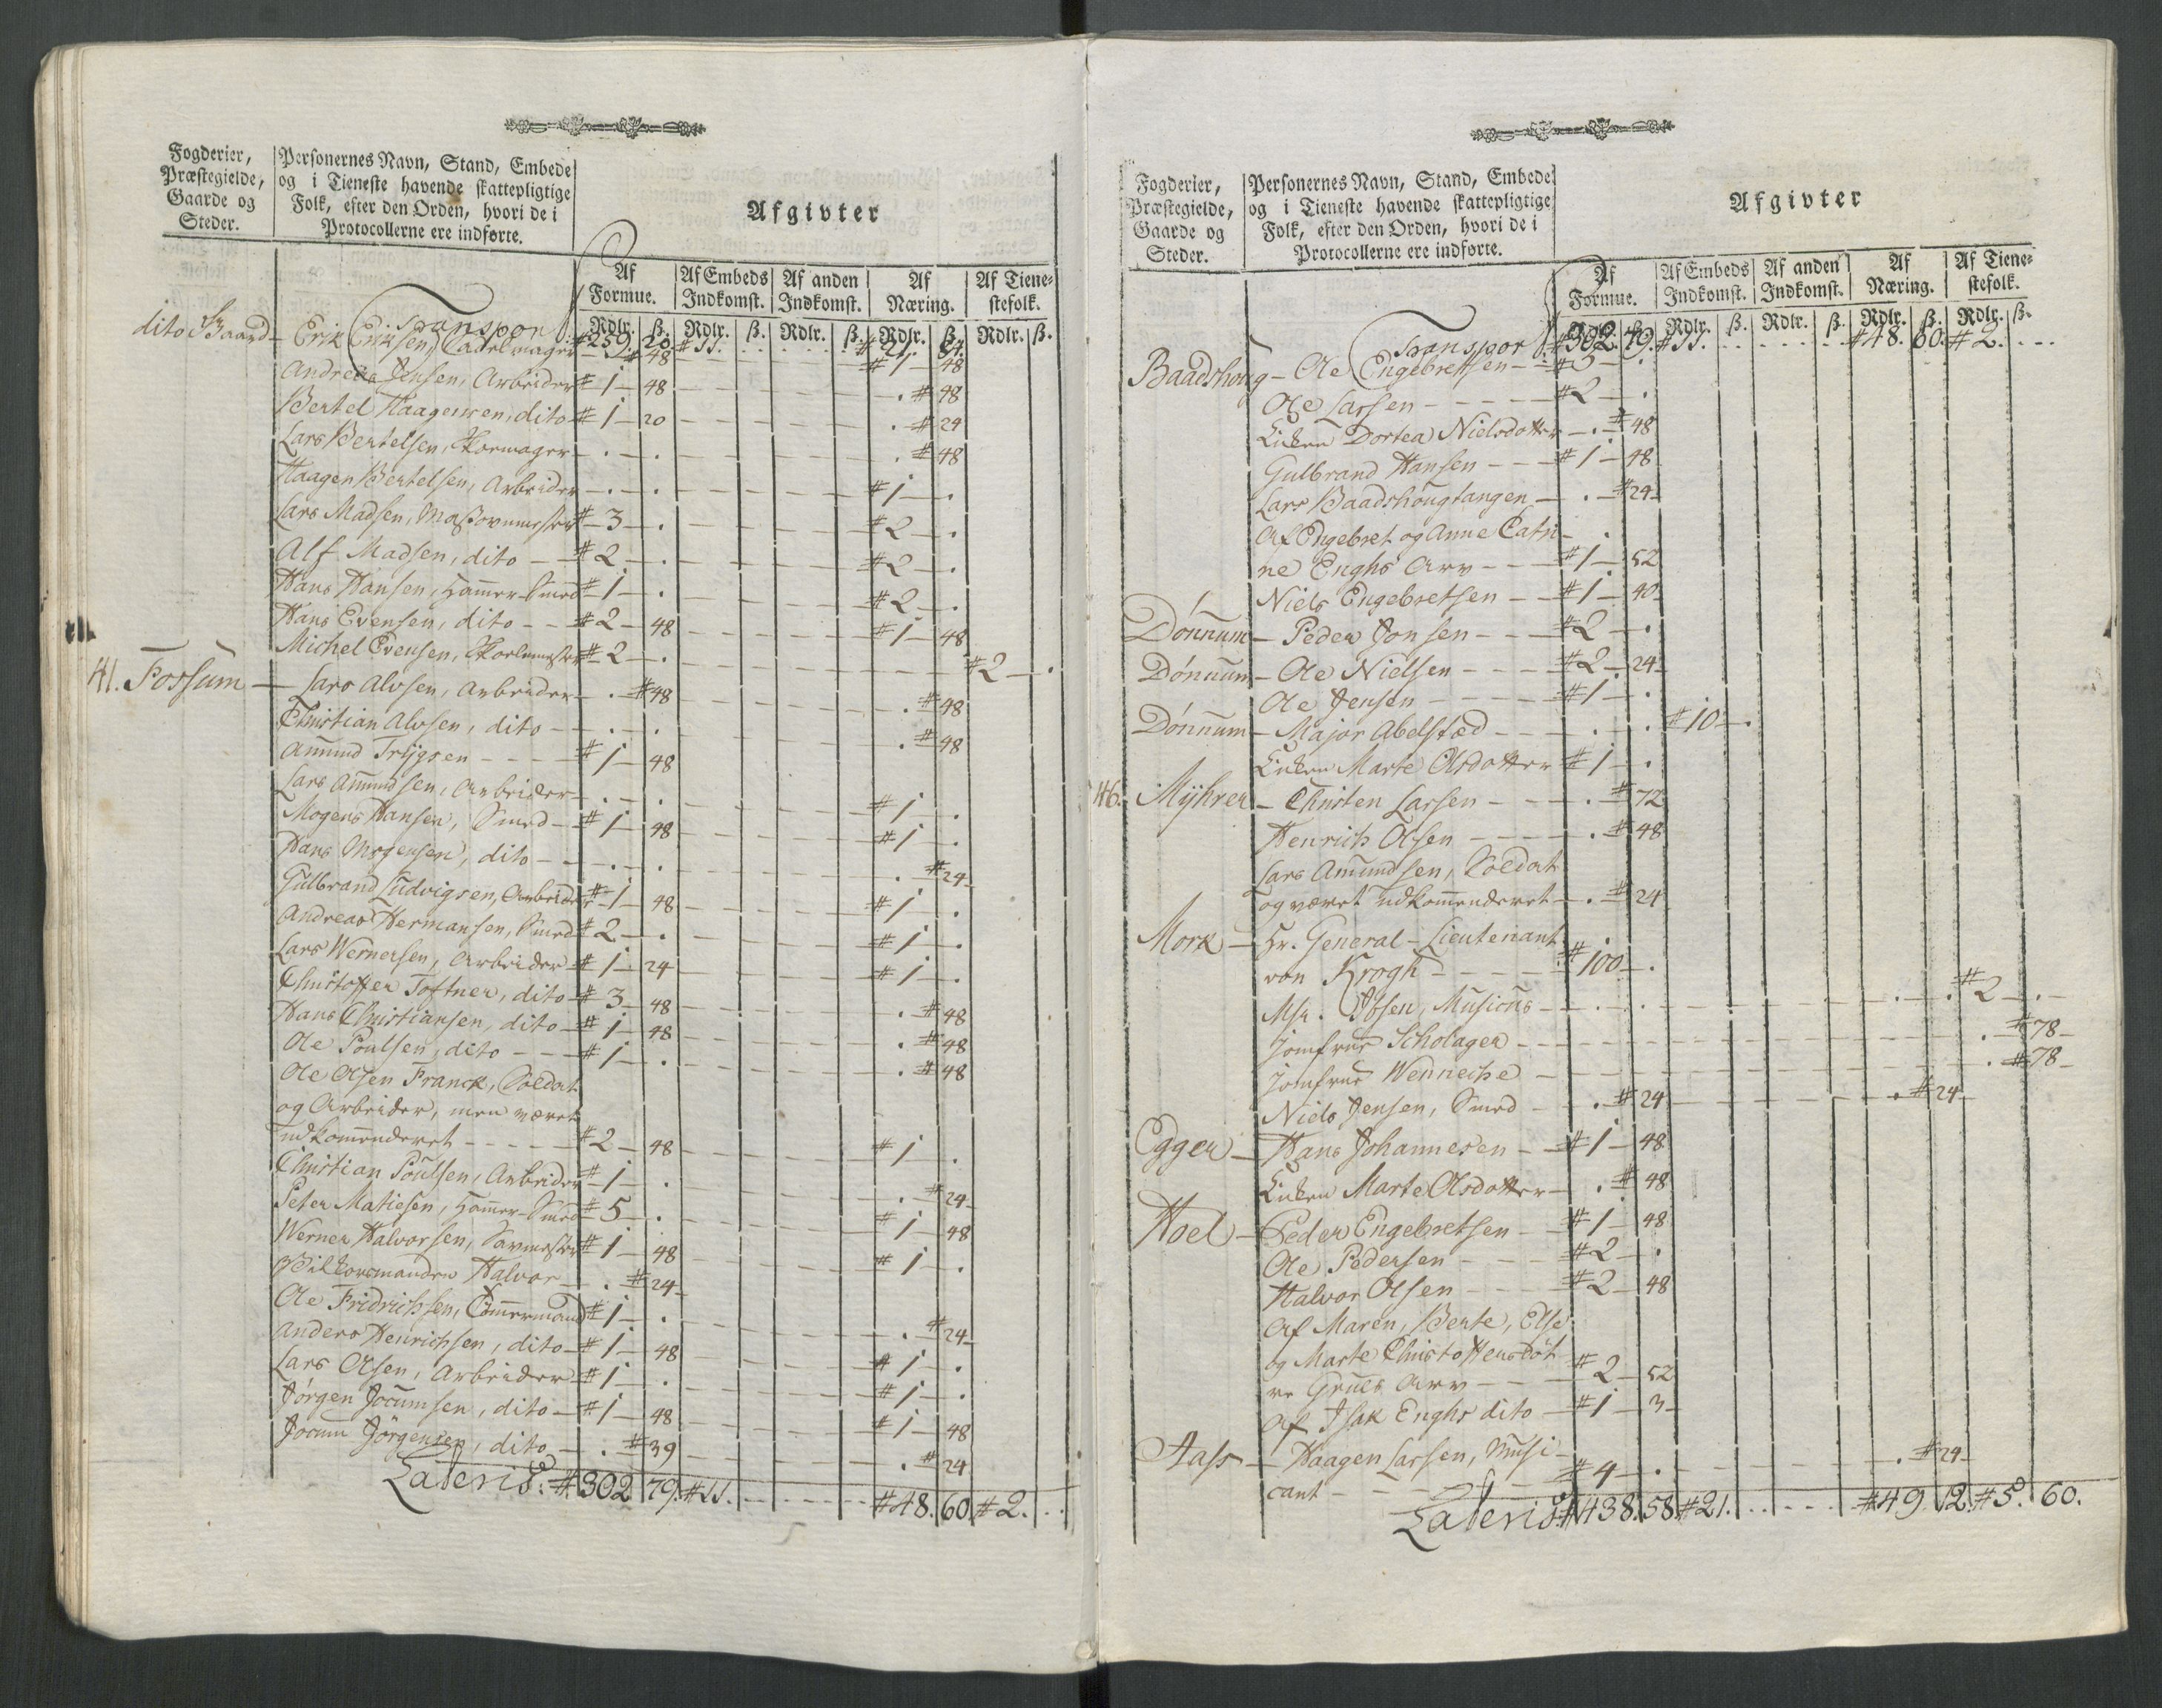 Fogderier,
Præstegielde,
Gaarde og
Steder.
Personernes Navn, Stand, Embede
og i Tieneste havende skattepligtige
Folk, efter den Orden, hvori de i
Protocollerne ere indførte.
Afgivter
Af Formue. Af Embeds Indkomst. Af anden Indkomst. Af Næring. Af Tienestefolk.
Rdlr. ß. Rdlr. ß. Rdlr. ß. Rdlr. ß. Rdlr. ß.
Transport #259. 20 #11. . . . . #21. 84.
dito Baand - Erik Eriksen, - . #48 - #1 - 48
Andreas Jensen, Arbeider #1 - 48 - . #48
Bertel Haagensen, dito #1 - 20 - . #24
Lars Bertelsen, Skoemager - . - . - . #48
Haagen Bertelsen, Arbeider - . - . - #1 - .
Lars Madsen, Masovnmester #3 - . - #2 - .
Alf Madsen, dito - #2 - . - #2 - .
Hans Hansen, Hammer-Smed #1 - . - #2 - .
Hans Evensen, dito - - #2 - 48 - #1 - 48
Michel Evensen, #2 - . - #2 - .
41. Fossum - Lars Alvsen, Arbeider - . #48 - . #48
Christian Alvsen, dito - . - . - . #48
Amund Trygsen - - - #1 - 48
Lars Amundsen, Arbeider - . - . - #1 - .
Mogens Hansen, Smed - #1 - 48 - #1 - .
Hans Mogensen, dito - - . - . - . #24
Gulbrand Ludvigsen, Arbeider #1 - 48 - #1 - .
Andreas Hermansen, Smed #2 - . - #1 - .
Lars Wernersen, Arbeider #1 - 24 - #1 - .
Christoffer Toftner, dito - #3 - 48 - . #48
Hans Christiansen, dito - #1 - 48 - . #48
Ole Poulsen, dito - - - #1 - . - . #48
Ole Olsen Franck, Soldat
og Arbeider, men været
udkommenderet - - - #2 - 48 - #1 - .
Christian Poulsen, Arbeider #1 - . - . #24
Peter Matiesen, Hammer-Smed #5 - . - #1 - 48
Werner Halvorsen, Savmester #1 - 48 - #1 - .
Vilkorsmanden Halvor - . #24
Ole Fridrichsen, Tömmermand #1 - . - . #24
Anders Henrichsen, dito - #1 - 48 - #1 - .
Lars Olsen, Arbeider - #1 - . - #1 - .
Jörgen Jocumsen, dito - #1 - 48 - #1 - 48
Jocum Jörgensen, dito - . #39 - . #24
Lateris. #302. 79. #11. . . . . #48. 60. #2. . .
Fogderier,
Præstegielde,
Gaarde og
Steder.
Personernes Navn, Stand, Embede
og i Tieneste havende skattepligtige
Folk, efter den Orden, hvori de i
Protocollerne ere indførte.
Afgivter
Af Formue. Af Embeds Indkomst. Af anden Indkomst. Af Næring. Af Tienestefolk.
Rdlr. ß. Rdlr. ß. Rdlr. ß. Rdlr. ß. Rdlr. ß.
Transport #302. 79. #11. . . . . #48. 60. #2. . .
Baadshoug - Ole Engebretsen - - #3 - .
Ole Larsen - - - - #2 - .
Enken Dortea Nielsdotter - . #48
Gulbrand Hansen - - - #1 - 48
Lars Baadshougtangen - . #24
Af Engebret og Anne Catri-
ne Enghs Arv - - - #1 - 52
Niels Engebretsen - - #1 - 40
Dönnum - Peder Jonsen - - - #2 - .
Dönnum - Ole Nielsen - - - #2 - 24
Ole Jensen - - - - #1 - .
Dönnum - Major Abelsted - - - . . #10 - .
Enken Marte Olsdotter #1 - .
46. Myhrer - Christen Larsen - - - . #72
Henrich Olsen - - - - . #48
Lars Amundsen, Soldat
og været udkommenderet - . #24
Mork - Hr. General-Lieutenant
von Krogh - - - - #100 - .
Msr. Ibsen, - . - . - . - . #2 - .
Jomfrue Scholager - - - . #78
Jomfrue Wenneche - - - . #78
Niels Jensen, Smed - - . #24 - . #24
Egger - Hans Johannesen - - #1 - 48
Enken Marte Olsdotter - . #48
Hoel - Peder Engebretsen - #1 - 48
Ole Pedersen - - - #2 - .
Halvor Olsen - - - #2 - 48
Af Maren, Berte, Else
og Marte Christoffersdöt-
re Grues Arv - - - #2 - 52
Af Isak Enghs dito - #1 - 3
Aass - Haagen Larsen, Musi-
cant - - - - #4 - . - . #24
Lateris. #438. 58. #21. . . . . #49. 12. #5. 60.